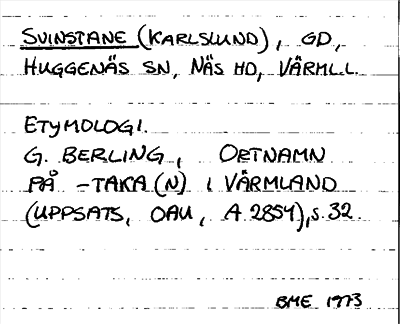 SVINSTANE (KARLSLUND), GD,
HUGGENÄS SN, NÄS HD, VÄRML.L.
ETYMOLOGI.
G. BERLING, ORTNAMN
PÅ -TAKA(N) I VÄRMLAND
(UPPSATS, OAU, A. 2854), s. 32.
BME 1973